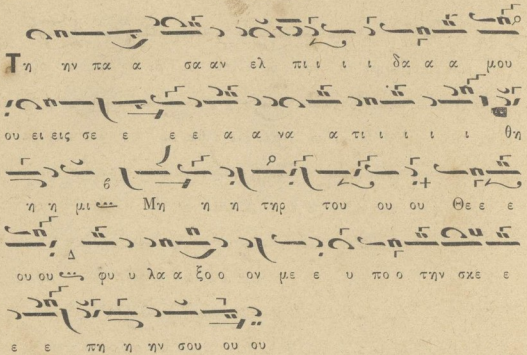 Τη ην πα α σα αν ελ πι ι ι ι δα α α μου
ου ει εις σε ε ε ε α α να α τι ι ι ι ι θη
η η μι Μη η η τηρ του ου ου Θε ε ε
ου ου φυ υ λα α ξο ο ον με ε υ πο ο την σκε ε
ε ε πη η ην σου ου ου